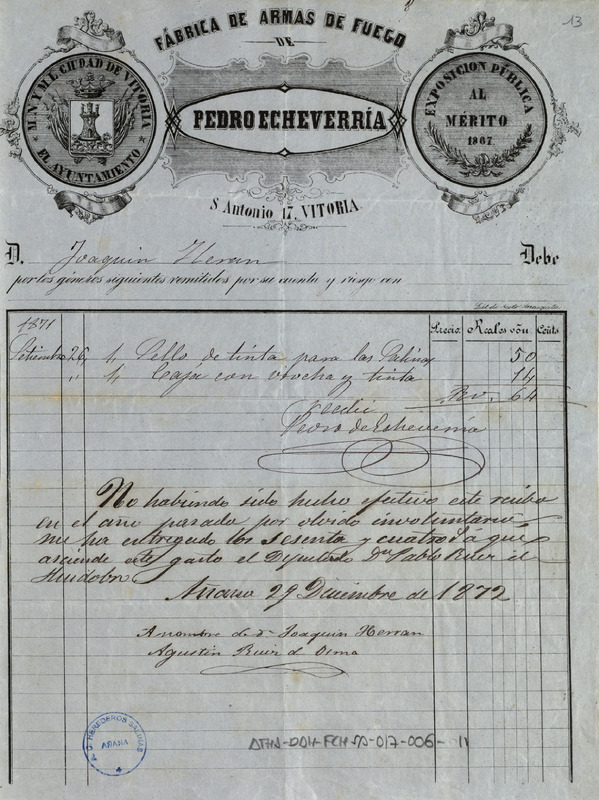 13
FÁBRICA DE ARMAS DE FUEGO
DE
PEDRO ECHEVERRÍA
S. Antonio 17, VITORIA
M.N. Y M.L. CIUDAD DE VITORIA
EL AYUNTAMIENTO
EXPOSICION PÚBLICA
AL
MÉRITO
1867
D. Joaquin Heran Debe
por los géneros siguientes remitidos por su cuenta y riesgo con
Precio. Reales vón Cénts
1871
Setiembre 26 1, Sello de tinta para las Salinas 50
" 1, Caja con brocha y tinta 14
Rv. 64
Recibi
Pedro de Echeverria
No habiendo sido hecho efectivo este recibo
en el ano pasado por olvido involuntario
me ha entregado los sesenta y cuatro á que
asciende este gasto el Diputado Dn Pablo Ruiz de
Huidobro
Anana 29 Diciembre de 1872
A nombre de Dn Joaquin Herran
Agustin Ruiz de Osma
HEREDEROS SALINAS
AÑANA
ATHA-DAH-FCH-SA-017-006-11